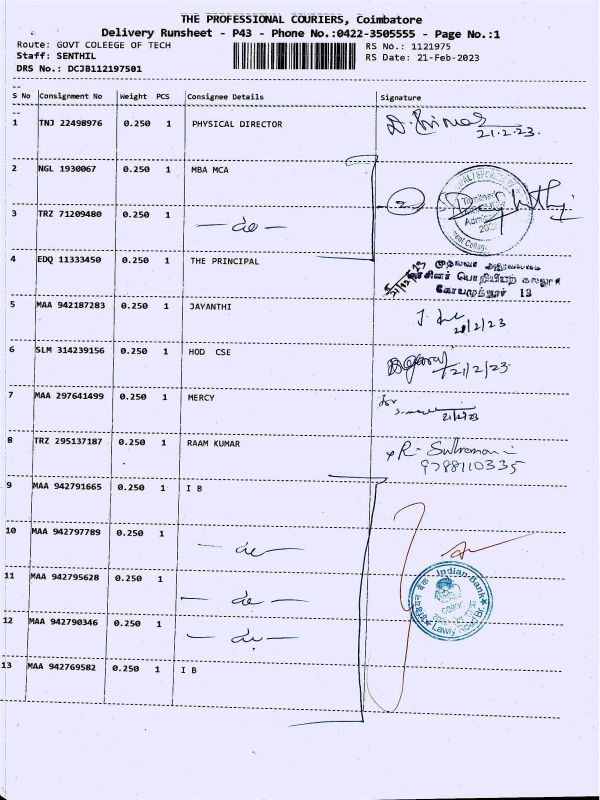 THE PROFESSIONAL COURIERS, Coimbatore
Delivery Runsheet - P43 - Phone No.:0422-3505555 - Page No.:1
Route: GOVT COLEEGE OF TECH RS No.: 1121975
Staff: SENTHIL RS Date: 21-Feb-2023
DRS No.: DCJB112197501
S No Consignment No Weight PCS Consignee Details Signature
1 TNJ 22498976 0.250 1 PHYSICAL DIRECTOR
21.2.23.
2 NGL 1930067 0.250 1 MBA MCA
3 TRZ 71209480 0.250 1 — do —
4 EDQ 11333450 0.250 1 THE PRINCIPAL
கோயமுத்தூர் 13
5 MAA 942187283 0.250 1 JAYANTHI
21/2/23
6 SLM 314239156 0.250 1 HOD CSE
21/2/23
7 MAA 297641499 0.250 1 MERCY
for
21/2/23
8 TRZ 295137187 0.250 1 RAAM KUMAR
9788110335
9 MAA 942791665 0.250 1 I B
10 MAA 942797789 0.250 1 — do —
11 MAA 942795628 0.250 1 — do —
Indian Bank
12 MAA 942790346 0.250 1 — do —
13 MAA 942769582 0.250 1 I B